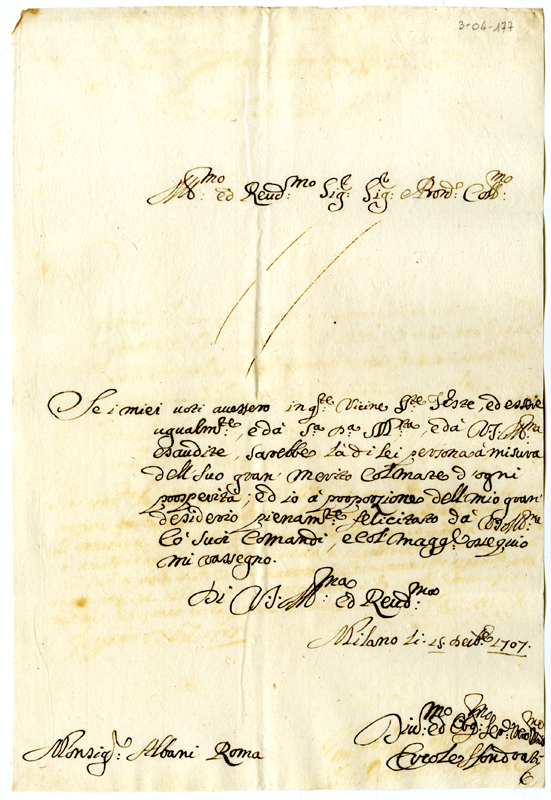 3-04-177
Ill:mo ed Reud:mo Sig:r Sig:r Prond:e Col:mo
Se i miei uoti auessero in q:te Vicine S:te Feste, ed essere
ugualm:te, e da S:a D:a M:tra, e da V:S: Ill:ma
esaudire, sarebbe la di lei persona à misura
dell Suo gran merito Colmare d'ogni
prosperità; ed io à proporzione dell mio gran
desiderio pienam:te felicitato da VS Ill:ma
Co' suoi Comandi, e col magg:r ossequio
mi rassegno.
Di V:S: Ill:ma ed Reud:ma
Milano li: 15 Decēb:e 1707.
Diu:mo ed Obg:mo Ser:re
Monsig:r Albani Roma
Ercole Sfondrati